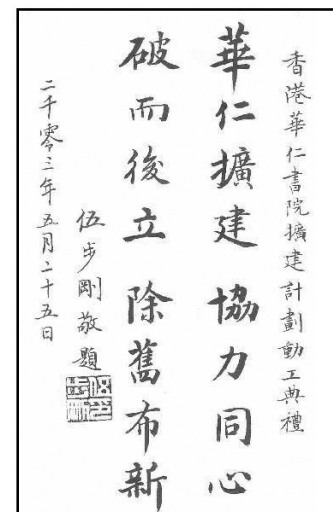 香港華仁書院擴建計劃動工典禮
華仁擴建協力同心
破而後立除舊布新
伍步剛敬題
二千零三年五月二十五日